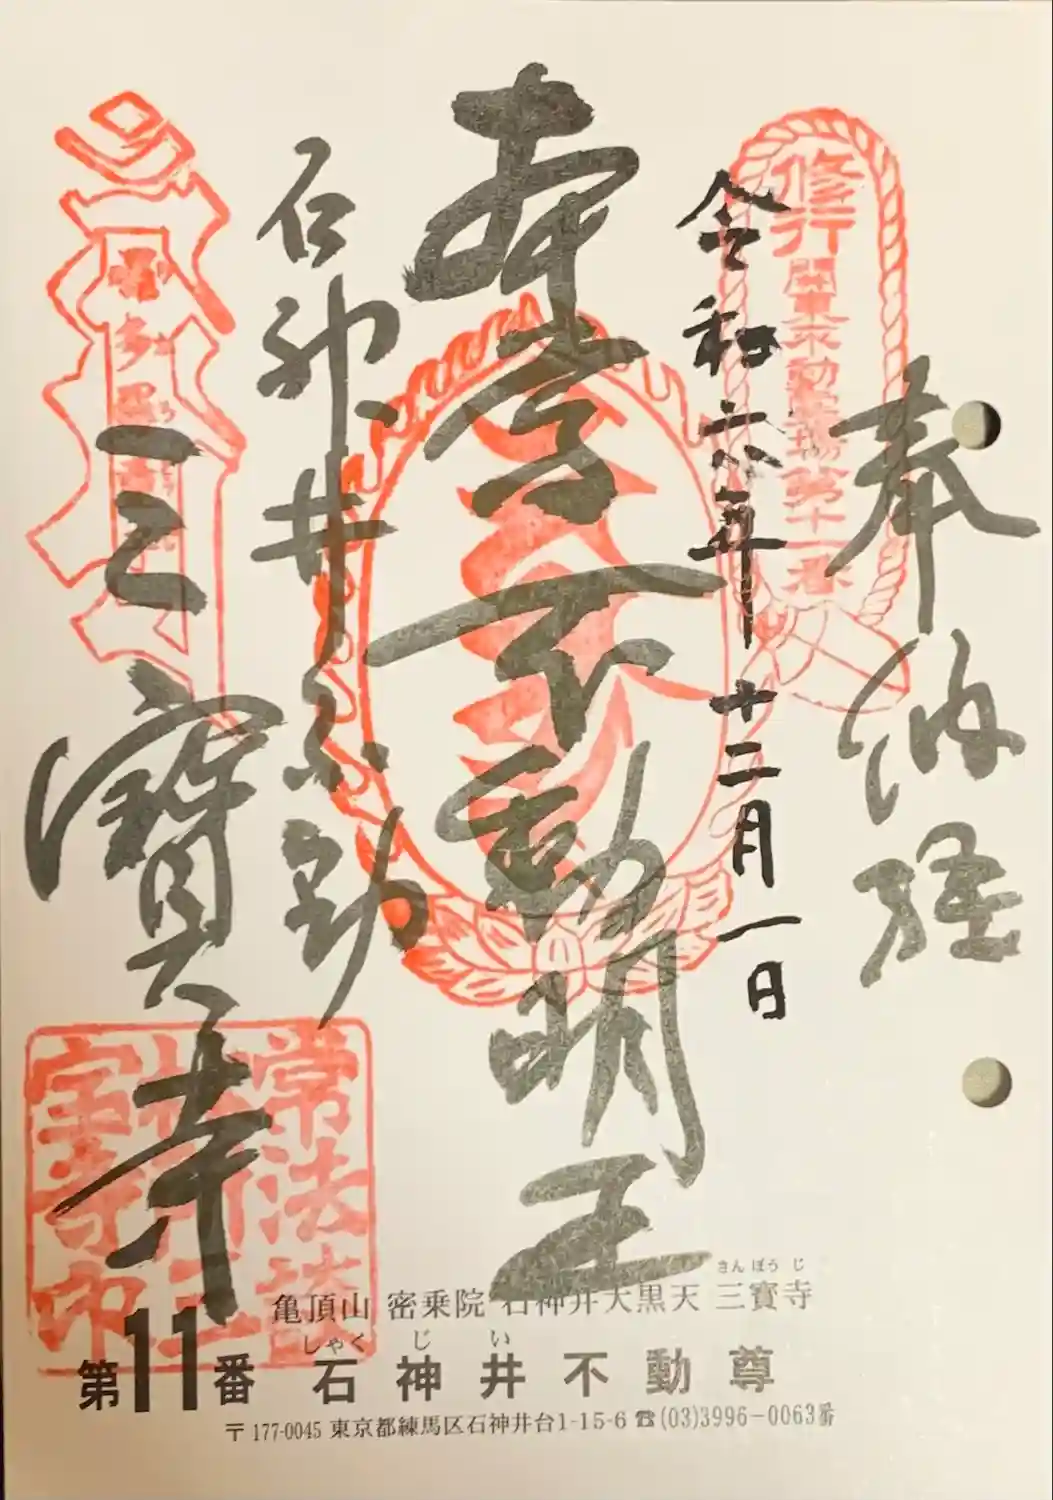 奉納経
修行
関東不動霊場第十一番
令和六年十二月一日
本尊不動明王
石神井不動
三寳寺
常法談
林所三
宝寺印
さんぽうじ
亀頂山 密乗院 石神井大黒天 三寳寺
しゃくじい
第11番 石神井不動尊
〒177-0045 東京都練馬区石神井台1-15-6 ☎(03)3996-0063番